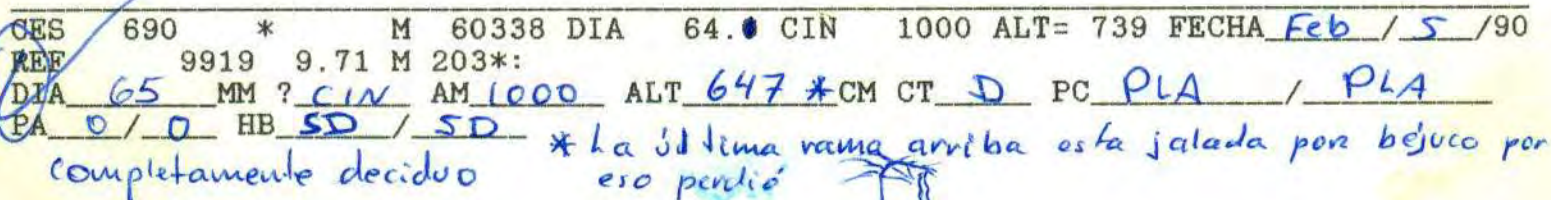 CES 690 * M 60338 DIA 64. CIN 1000 ALT= 739 FECHA Feb / 5 /90
REF 9919 9.71 M 203*:
DIA 65 MM ? CIN AM 1000 ALT 647 * CM CT D PC PLA / PLA
PA 0 / 0 HB SD / SD * La última rama arriba esta jalada por bejuco por
completamente deciduo eso perdió